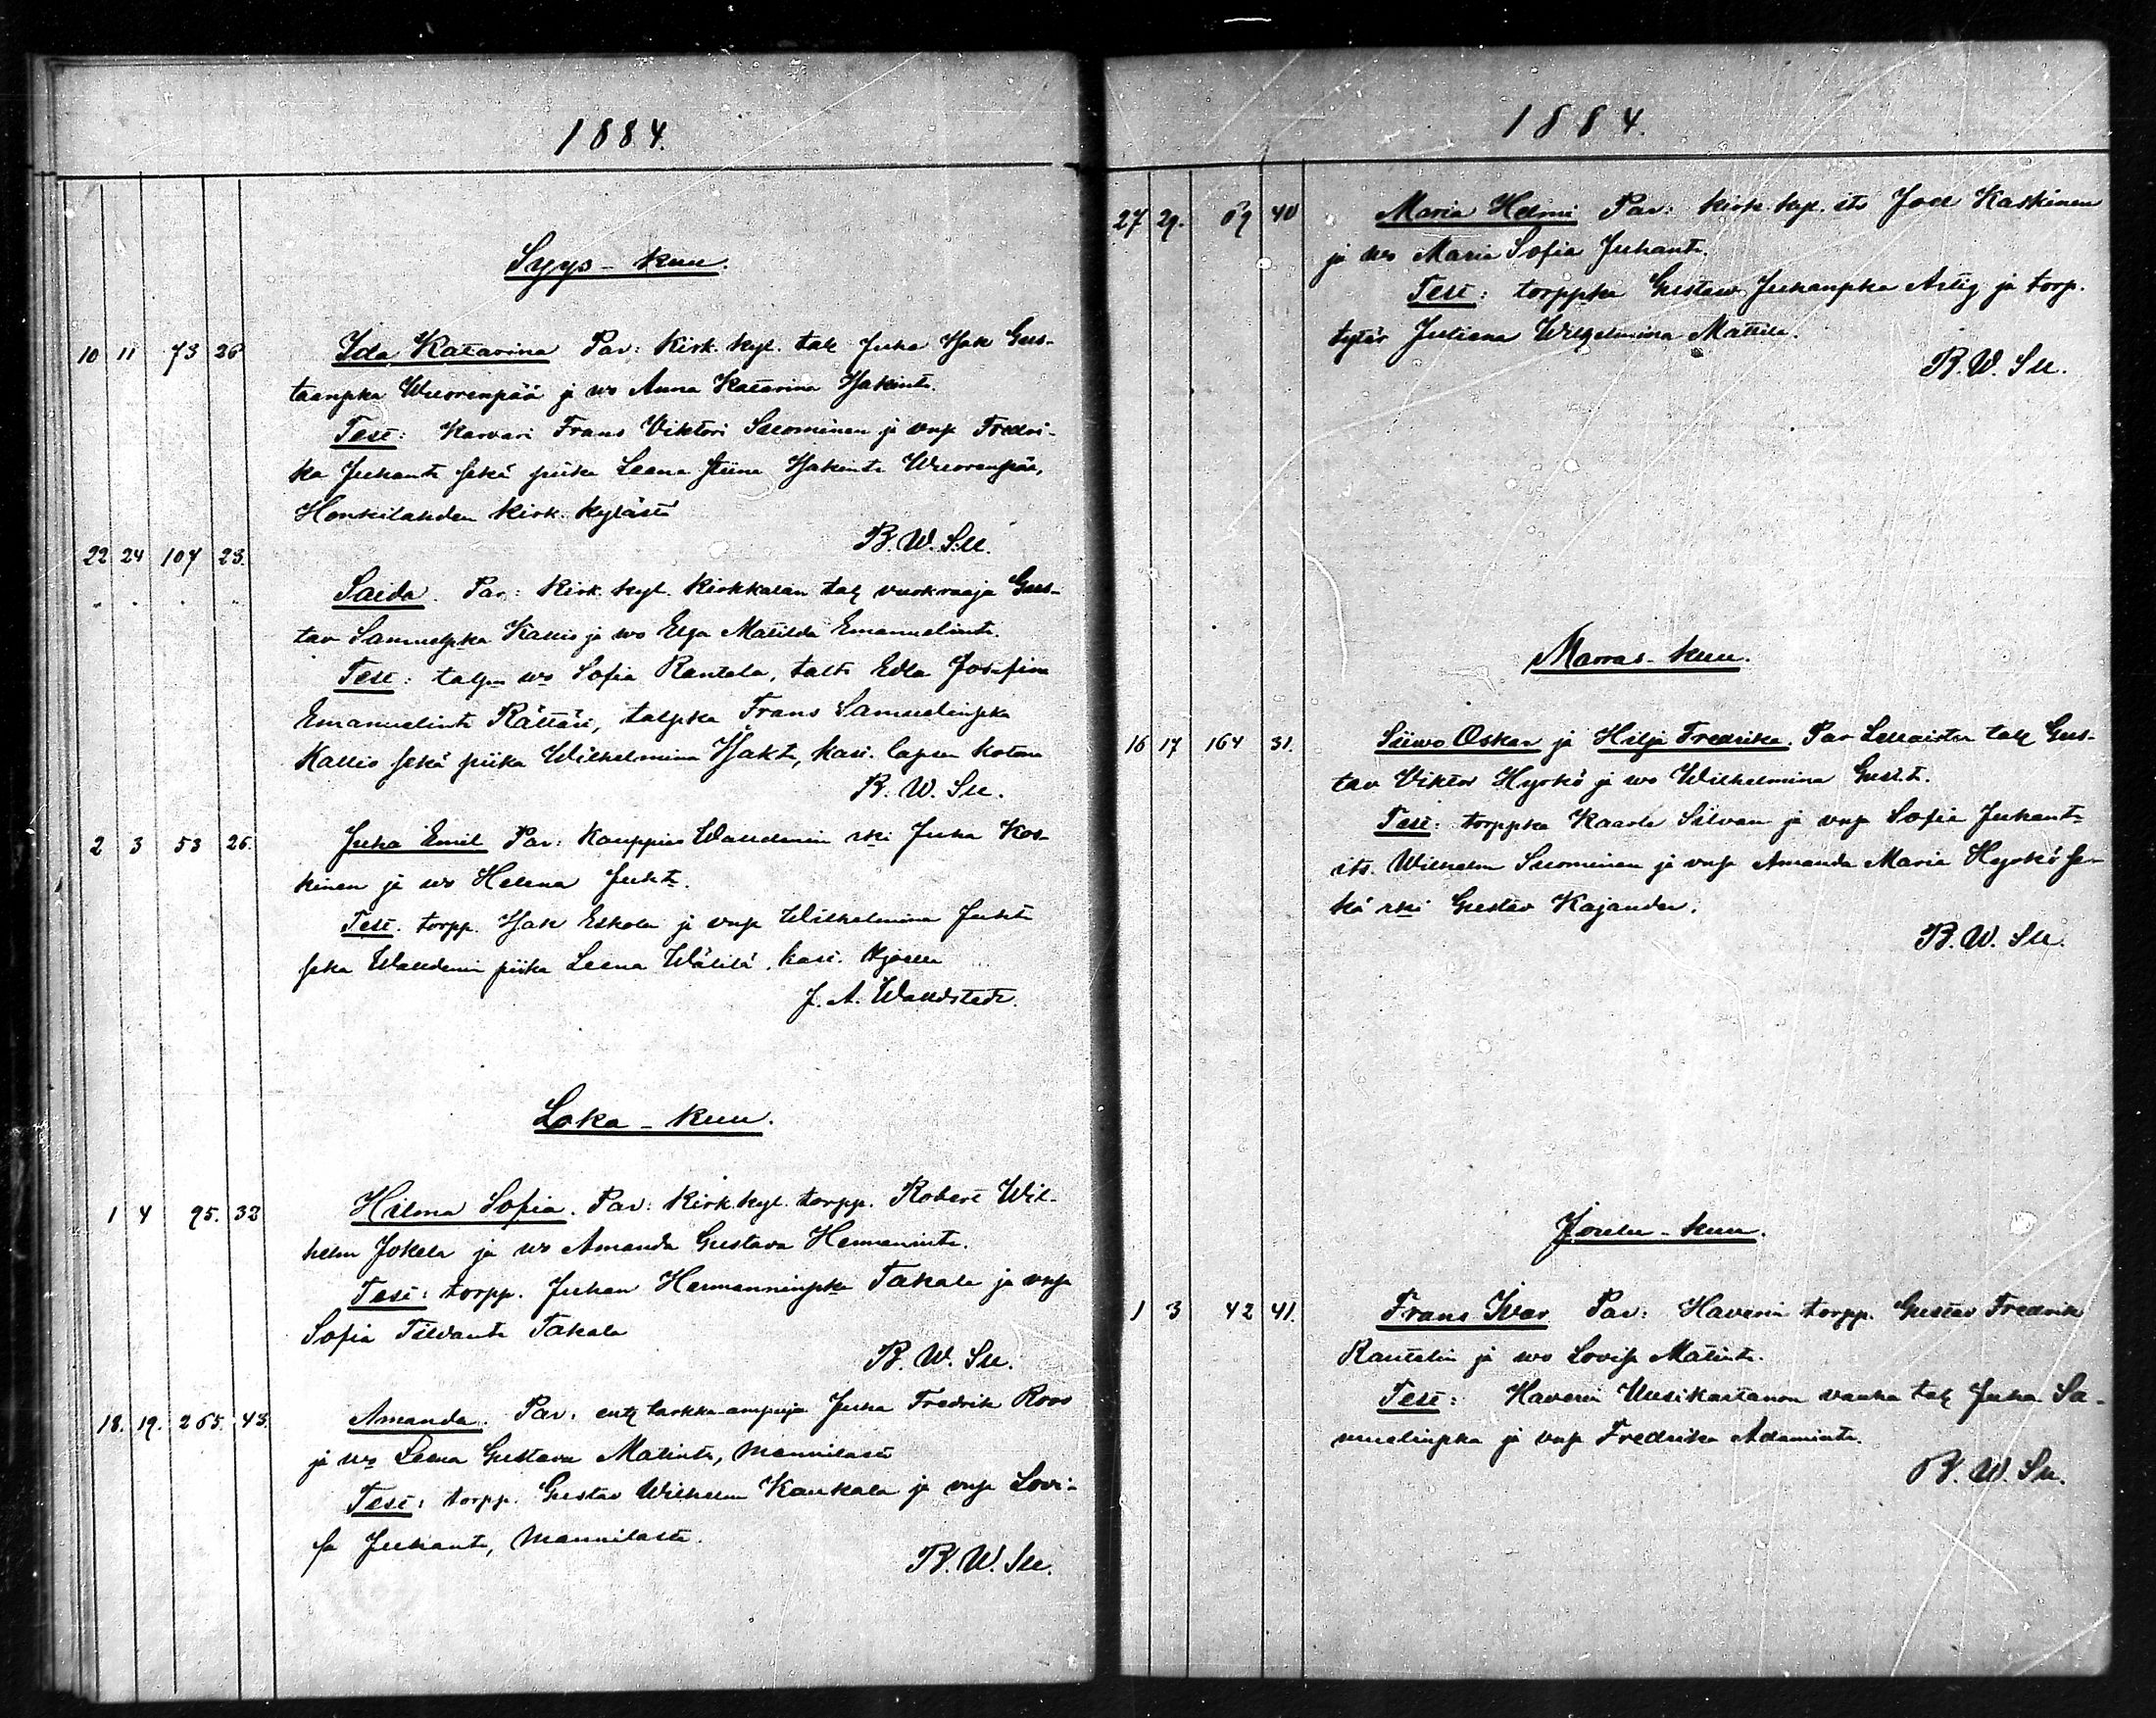 1884.
Syys-kuu.
10 11 73 26 Ida Katarina Par: Kirk. kyl. tal: Juha Isak Gus-
taanpka Wuorenpää ja wo Anna Katarina Isakint.
Test: Karvari Frans Viktori Suominen ja vmp Fredri-
ka Juhant sekä piika Leena Stiina Isakint Wuorenpää,
Honkilahden kirk. kylästä
B. W. S:ll.
22 24 107 23. Saida. Par: Kirk. kyl. Kirkkalan tal: vuokraaja Gus-
tav Samuelpka Kallio ja wo Elga Matilda Emanuelint.
Test: talpn wo Sofia Rantala, talt: Edla Josefina
Emanuelint Rättäri, talpka Frans Samuelinpka
Kallio sekä piika Wilhelmina Isakt, kasi. lapsen kotona
B. W. Sll.
2 3 53 26. Juha Emil Par: Kauppias Walldenin rki Juha Kos-
kinen ja wo Helena Juht.
Test. torpp. Isak Eskola ja vmp Wilhelmina Juht
seka Walldenin piika Leena Wälilä. kasi.
J. A. Walldstedt.
Loka-kuu.
1 4 95. 33 Hilma Sofia. Par: Kirk. kyl. torpp. Robert Wil-
helm Jokela ja wo Amanda Gustava Hermanint.
Test: torpp. Juhan Hermanninpka Takala ja vmp
Sofia Takala
B. W. Sll.
18. 19. 265. 43. Amanda. Par: ent: tarkka-ampuja Juha Fredrik Roos
ja wo Leena Gustava Matint, Mannilasta
Test: torpp. Gustav Wilhelm Kaukala ja vmp Lovi-
sa Juhant, Mannilasta.
B. W. Sll.
1884.
27 29. 69 40 Maria Helmi Par: Kirk. kyl. its Joel Kaskinen
ja wo Maria Sofia Juhant.
Test: torppka Gustav Juhanpka Artig ja torp.
tytär Juliana Wilhelmina Mattila.
B. W. Sll.
Marras-kuu.
16 17 164 31. Siiwo Oskar ja Hilja Fredrika. Par Lellaisten tal: Gus-
tav Viktor Hyrkö ja wo Wilhelmina Gust.t.
Test: torppka Kaarle Silvan ja vmp Sofia Juhant
its. Wilhelm Suominen ja vmp Amanda Maria Hyrkö se-
kä rki Gustav Kajander.
B. W. Sll.
Joulu-kuu.
1 3 42 41. Frans Ivar Par: Haverin torpp. Gustav Fredrik
Rantalin ja wo Lovisa Matint.
Test: Haverin Uusikartanon vanha tal: Juha Sa-
muelinpka ja vmp Fredrika Adamint.
B. W. Sll.